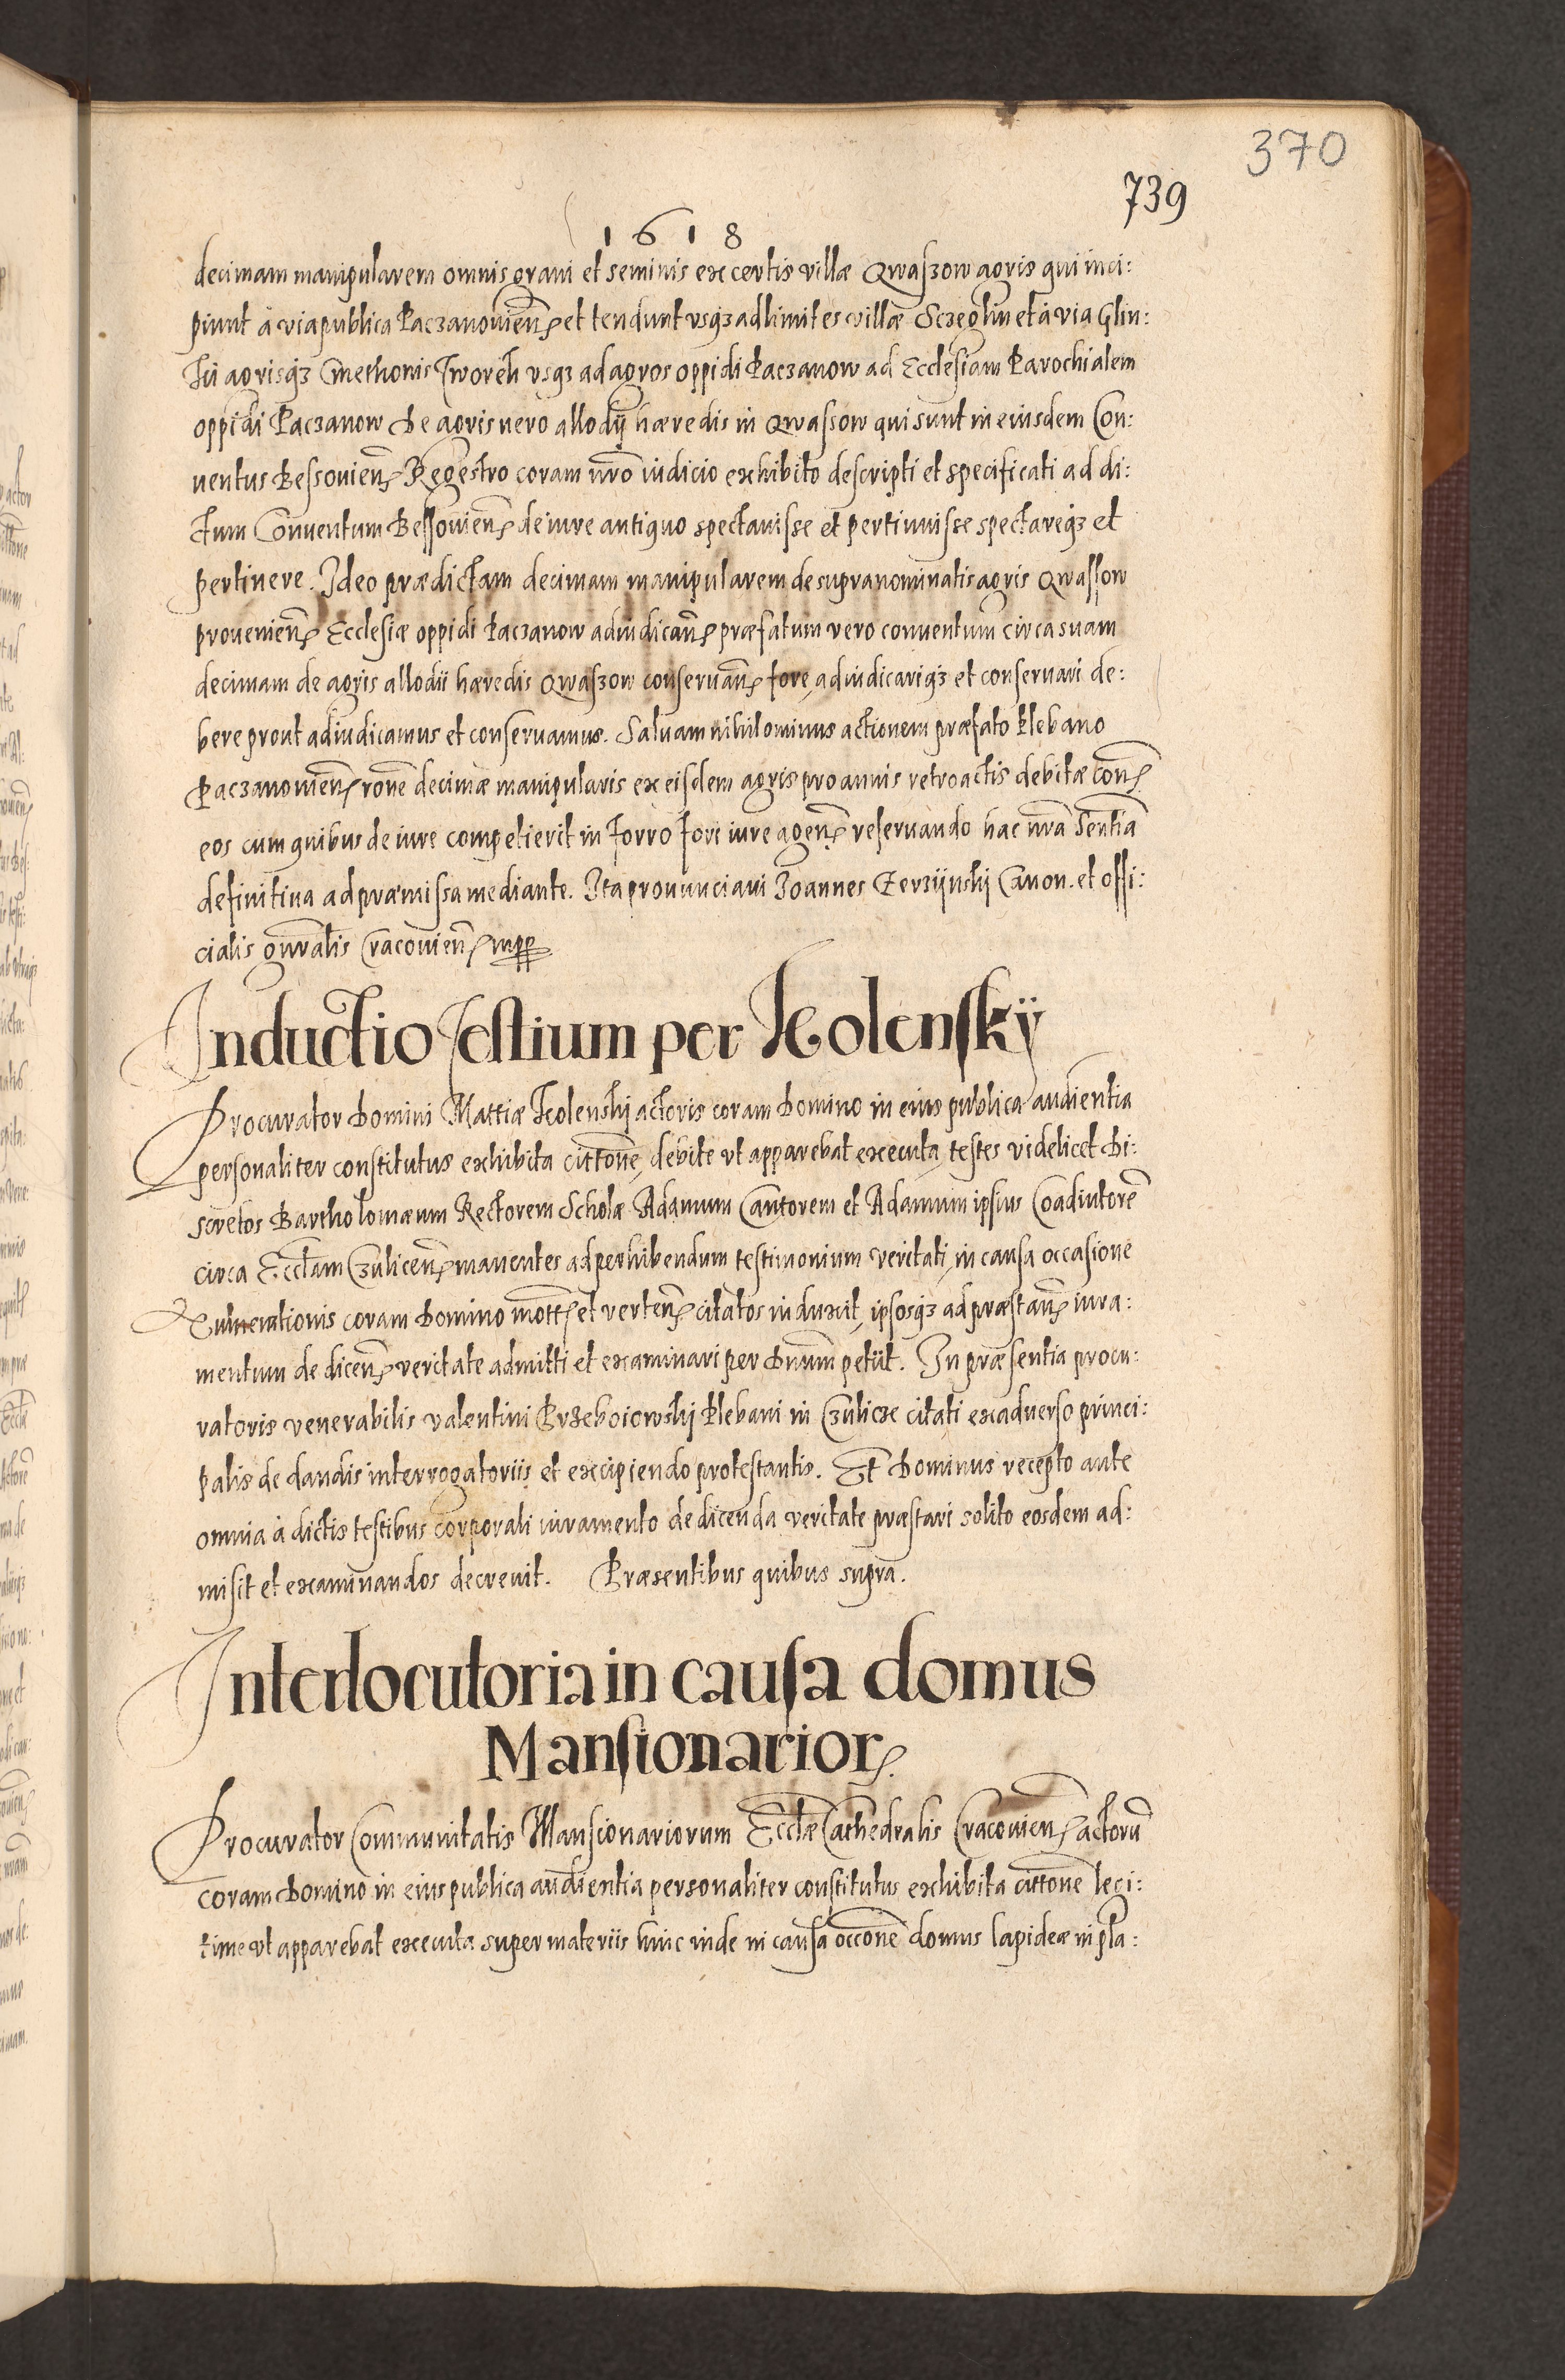 370
739
1618
decimam manipularem omnis grani et seminis ex certis villæ Qwaszow agris qui inci:
piunt à via publica Paczanouien̄ et tendunt vsq3 ad limites villæ Sczeglin et à via Glin:
ki agrisq3 Cmethonis Tworek vsq3 ad agros oppidi Paczanow ad Ecclesiam Parochialem
oppidi Paczanow De agris uero allodÿ hæredis in Qwassow qui sunt in eiusdem Con:
uentus Bessouien̄ Regestro coram nr̄o iudicio exhibito descripti et specificati ad di:
ctum Conuentum Bessouien̄ de iure antiquo spectauisse et pertinuisse spectareq3 et
pertinere. Ideo prædictam decimam manipularem de supranominatis agris Qwassow
prouenien̄ Ecclesiæ oppidi Paczanow adiudican̄ præfatum vero conuentum circa suam
decimam de agris allodii hæredis Qwaszow conseruan̄ fore, adiudicariq3 et conseruari de:
bere prout adiudicamus et conseruamus. Saluam nihilominus actionem præfato Plebano
Paczanouien̄ rōne decimæ manipularis ex eisdem agris pro annis retroactis debitæ con̄
eos cum quibus de iure competierit in forro fori iure agen̄ reseruando hac nr̄a sentīa
definitiua ad præmissa mediante. Ita pronunciaui Joannes Gerzÿnski Canon. et offi:
cialis gn̄ralis Cracouien̄ mpp
Inductio Testium per Kolenskÿ
Procurator Domini Mattiæ Kolenskj actoris coram Domino in eius publica audientia
personaliter constitutus exhibita cittōne, debite vt apparebat executa, testes videlicet Di:
scretos Bartholomæum Rectorem Scholæ Adamum Cantorem et Adamum ipsius Coadiutorē
circa Eccl̄am Czulicen̄ manentes ad perhibendum testimonium veritati, in causa occasione
Vulnerationis coram Domino mott̄ et verten̄ citatos induxit, ipsosq3 ad præstan̄ iura:
mentum de dicen̄ veritate admitti et examinari per Dnūm petiit. In præsentia procu:
ratoris venerabilis valentini Przeboiowskj Plebani in Czulice citati ex aduerso princi:
palis de dandis interrogatoriis et excipiendo protestantis. Et Dominus recepto ante
omnia à dictis testibus corporali iuramento de dicenda veritate præstari solito eosdem ad:
misit et examinandos decreuit. Præsentibus quibus supra.
Interlocutoria in causa domus
Mansionarior̄
Procurator Communitatis Mansionariorum Eccl̄æ Cathedralis Cracouien̄ actorū
coram Domino in eius publica audientia personaliter constitutus exhibita cittōne legi:
time vt apparebat executa super materiis hinc inde in causa occōne domus lapideæ in pla: